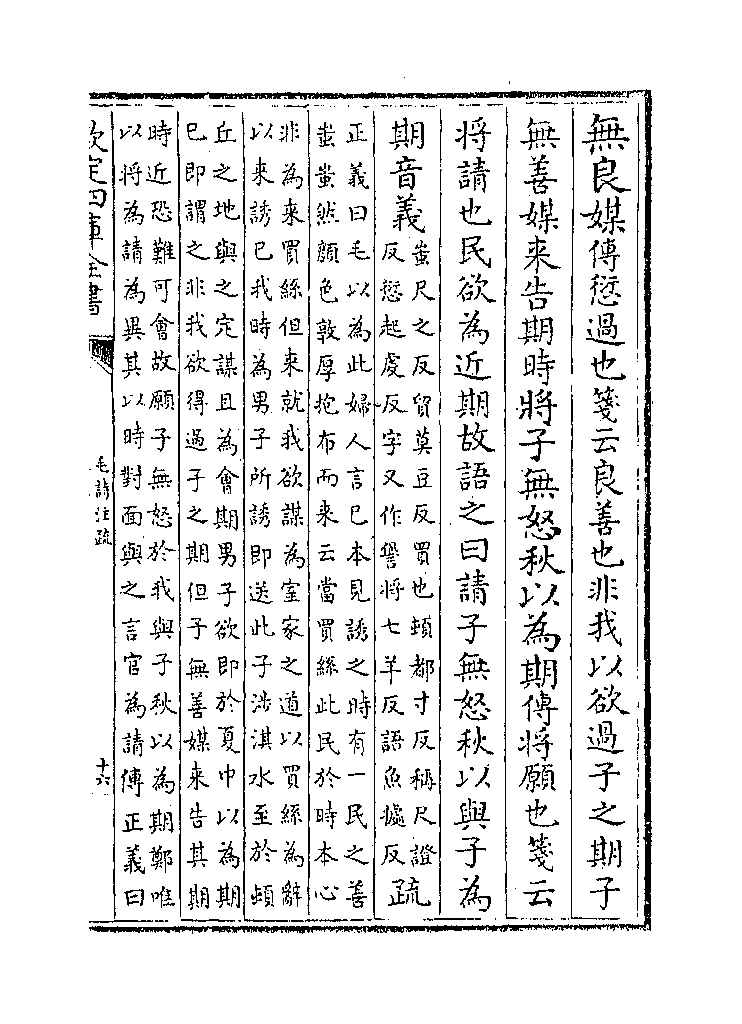 無良媒傳愆過也箋云良善也非我以欲過子之期子
無善媒来告期時將子無怒秋以為期傳將願也箋云
将請也民欲為近期故語之曰請子無怒秋以與子為
期音義
蚩尺之反貿莫豆反買也頓都寸反稱尺證
反愆起虔反字又作諐將七羊反語魚據反
疏
正義曰毛以為此婦人言已本見誘之時有一民之善
蚩蚩然顔色敦厚抱布而来云當買絲此民於時本心
非為来買絲但来就我欲謀為室家之道以買絲為辭
以来誘已我時為男子所誘即送此子涉淇水至於頓
丘之地與之定謀且為會期男子欲即於夏中以為期
已即謂之非我欲得過子之期但子無善媒来告其期
時近恐難可會故願子無怒於我與子秋以為期鄭唯
以將為請為異其以時對面與之言宜為請傳正義曰
欽定四庫全書
毛詩注疏
十六